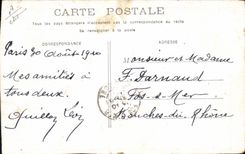 CARTE POSTALE
Tous les pays étrangers n'acceptent pas la correspondance au recto
Se renseigner à la poste
CORRESPONDANCE
ADRESSE
Paris 20 Août 1910
Monsieur et Madame
Mes amitiés à
F. Darnaud
tous deux.
-s-Mer
Bouches-du-Rhône